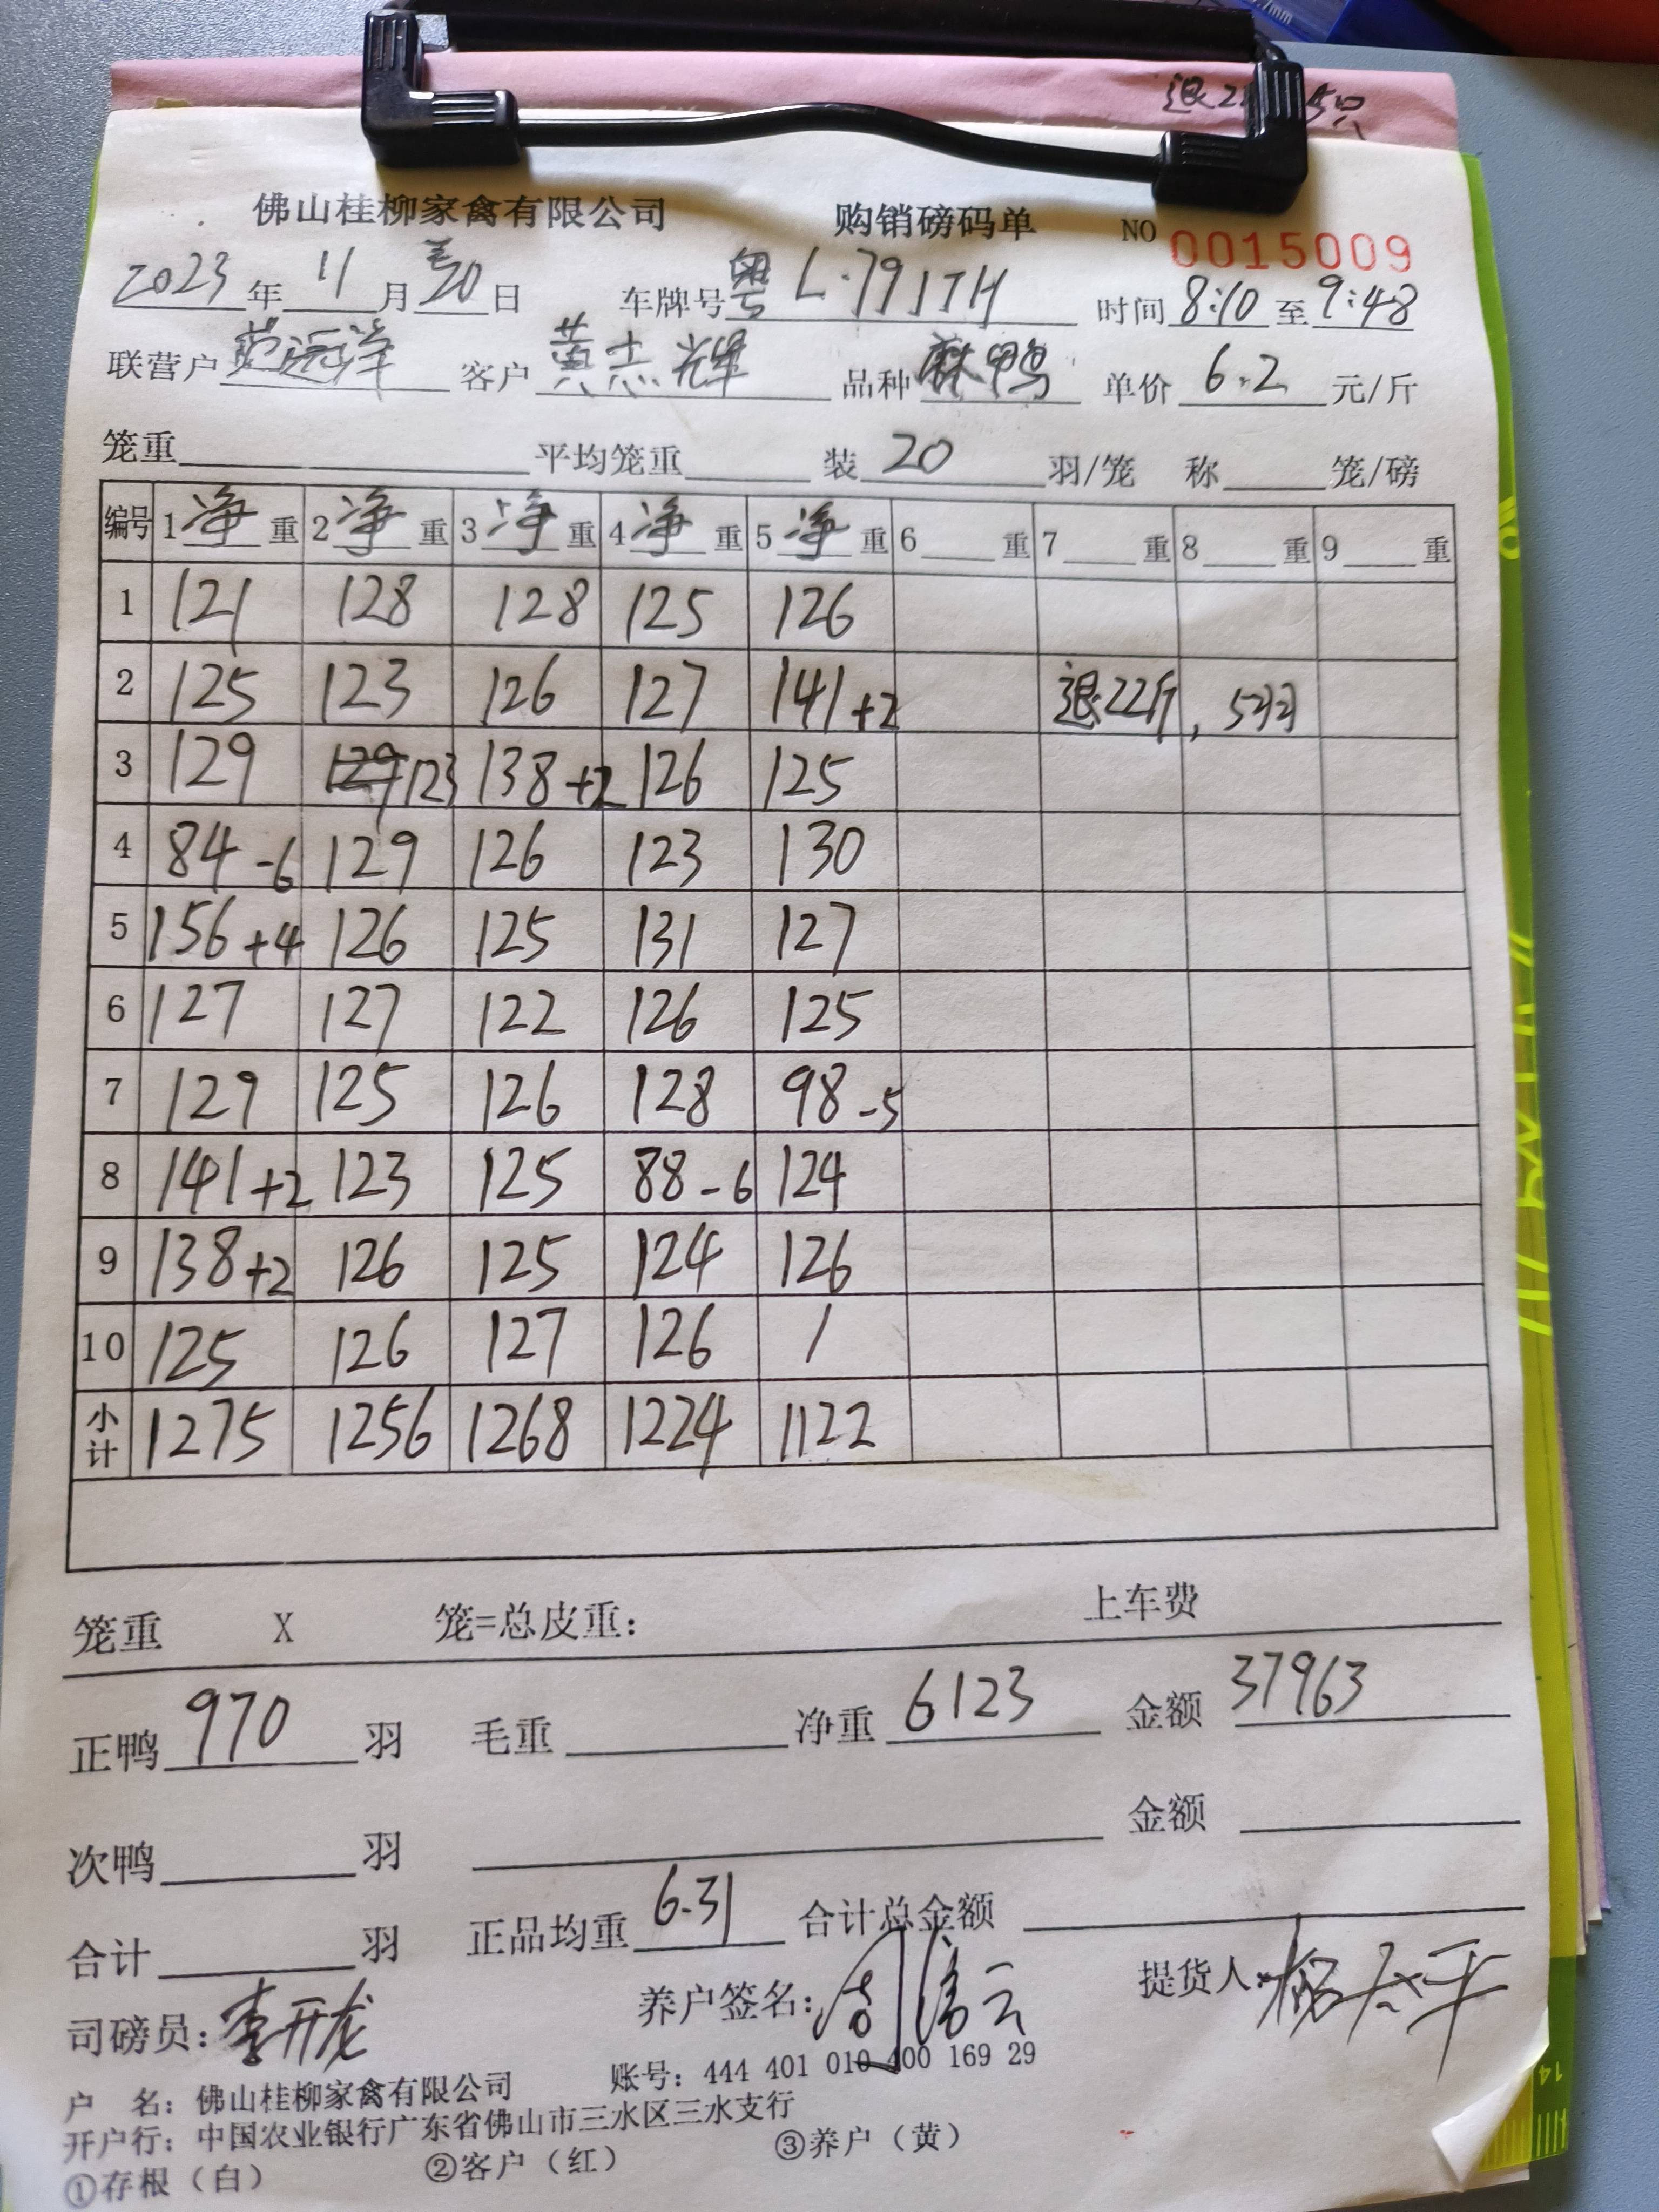 退2 5只
佛山桂柳家禽有限公司 购销磅码单 NO 0015009
2023年11月20日 车牌号粤L·791JTH 时间8:10至9:48
联营户范远洋 客户黄志辉 品种麻鸭 单价6.2元/斤
笼重 平均笼重 装20羽/笼 称 笼/磅
编号 1净重 2净重 3净重 4净重 5净重 6 重 7 重 8 重 9 重
1 121 128 128 125 126
2 125 123 126 127 141+2 退22斤, 5羽
3 129 129 123 138+2 126 125
4 84-6 129 126 123 130
5 156+4 126 125 131 127
6 127 127 122 126 125
7 129 125 126 128 98-5
8 141+2 123 125 88-6 124
9 138+2 126 125 124 126
10 125 126 127 126 /
小计 1275 1256 1268 1224 1122
笼重 X 笼=总皮重: 上车费
正鸭970羽 毛重 净重6123 金额37963
次鸭 羽 金额
合计 羽 正品均重6.31 合计总金额
司磅员:李开龙 养户签名: 提货人:
户 名: 佛山桂柳家禽有限公司 账号: 444 401 010 400 169 29
开户行: 中国农业银行广东省佛山市三水区三水支行
①存根（白） ②客户（红） ③养户（黄）
14